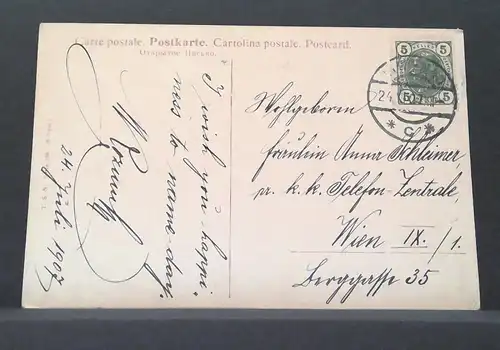 Carte postale. Postkarte. Cartolina postale. Postcard.
Открытое Письмо.
I wish you happi-
ness to name-day.
24. Juli 1907
5 HELLER 5
5 5
24
* C *
Wohlgeboren
Fräulein Anna Schleimer
pr. k. k. Telefon-Zentrale,
Wien IX./1.
Berggasse 35